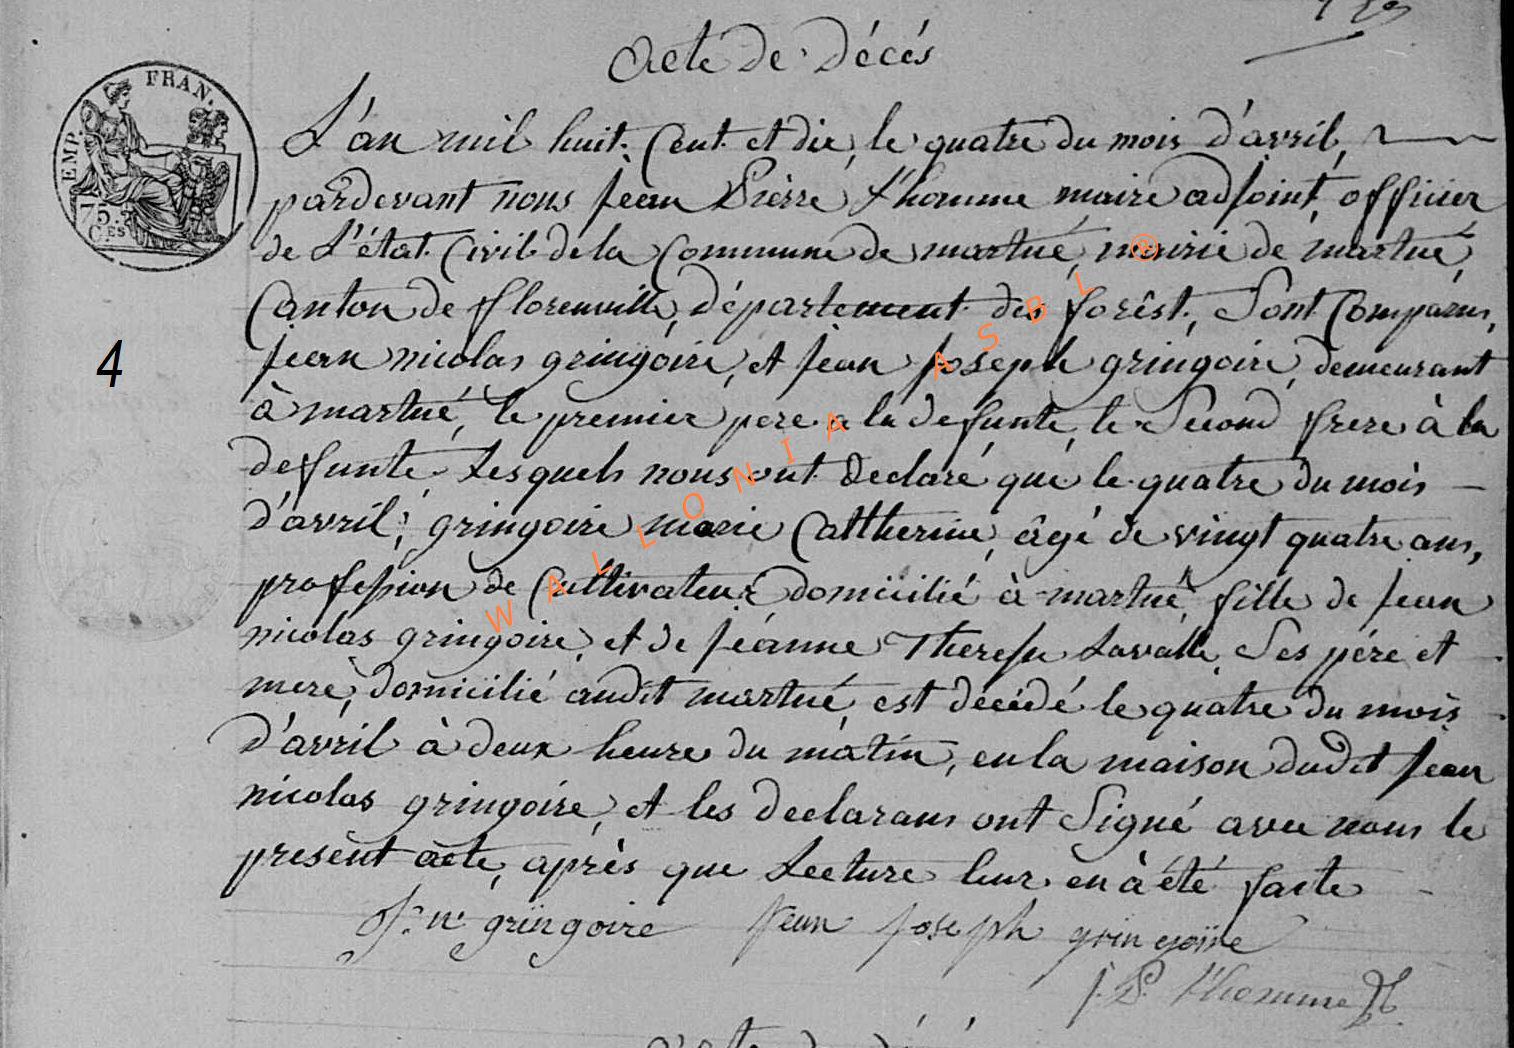 Acte de décés
EMP. FRAN.
75.
C.ES
L'an mil huit Cent et dix, le quatre du mois d'avril,
pardevant nous jean Pierre l'homme maire adjoint, officier
de L'état Civil de la Commune de martué, mairie de martué,
Canton de florenville, département des forêst, Sont Comparus,
4
jean nicolas gringoire, et jean joseph gringoire, demeurant
à martué, le premier pere a la defunte, le Second frere à la
defunte. Lesquels nous ont declaré que le quatre du mois
d'avril, gringoire marie Cattherine, âgé de vingt quatre ans,
profession de Cultivateur domicilié à martué, fille de jean
nicolas gringoire, et de jéanne Therese Lavalle, Ses pére et
mere, domicilié audit martué, est décédé le quatre du mois
d'avril à deux heure du matin, en la maison dudit jean
nicolas gringoire, et les declarans ont Signé avec nous le
présent acte, après que Lecture leur en à été faite
j. n. gringoire jean joseph gringoire
j. P. l'homme
WALLONIA ASBL ®